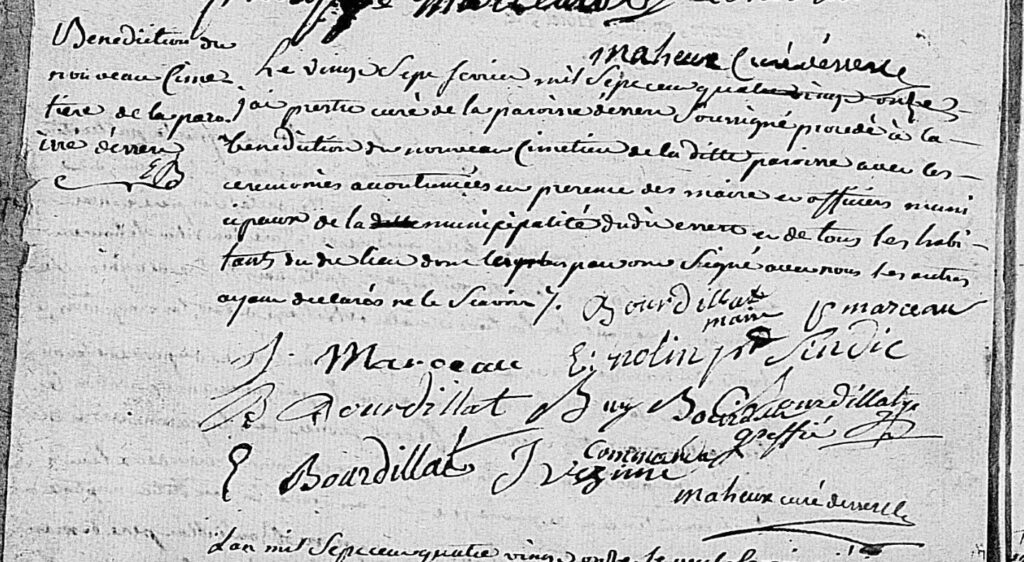 Marceau
maheux Curé desserte
Benediction du
nouveau Cime
tiére de la paro
isse d'esser
EB
Le vingt Sept fevrier mil Sept cent quatre vingt onze
j'ai prestre curé de la paroisse Soussigné procedé à la
benediction du nouveau Cimetiere de la ditte paroisse avec les
ceremonies accoutumées en presence des maire et officiers muni
cipaux de la municipalité dudit et de tous les habi
tants du dit lieu dont ont Signé avec nous les autres
ayant declarés ne le Scavoir /.
Bourdillat
maire
marceau
J. Marceau E. nolin pr Sindic
B Bourdillat Buy Bourdillat
greffié
E Bourdillat
maheux curé desserte
L'an mil Sept cent quatre vingt onze le